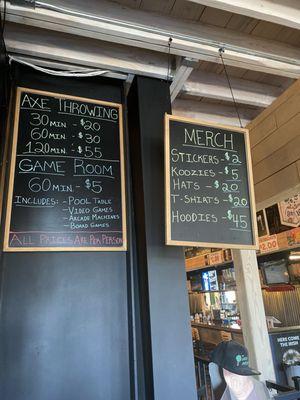 AXE THROWING
30 MIN - $20
60 MIN - $30
120 MIN - $55
GAME ROOM
60 MIN - $5
INCLUDES: - POOL TABLE
- VIDEO GAMES
- ARCADE MACHINES
- BOARD GAMES
ALL PRICES ARE PER PERSON
MERCH
STICKERS - $2
KOOZIES - $5
HATS - $20
T-SHIRTS - $20
HOODIES - $45
HERE COME
THE IRISH